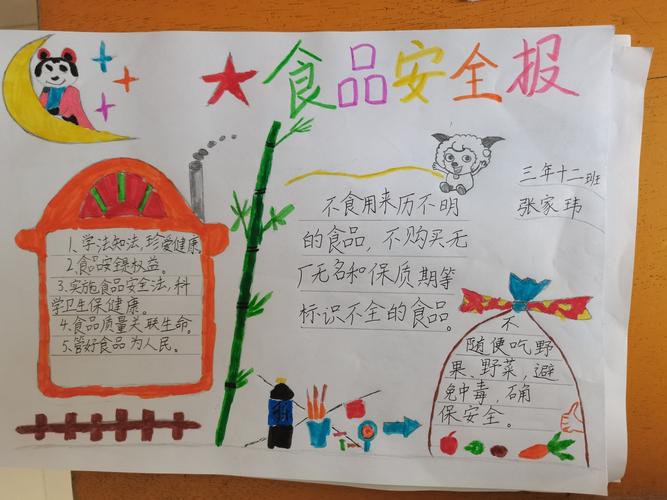 食品安全报
三年十二班
张家玮
1.学法知法,珍爱健康。
2.食品安全提权益。
3.实施食品安全法,科
学卫生保健康。
4.食品质量关联生命。
5.管好食品为人民。
不食用来历不明
的食品，不购买无
厂无名和保质期等
标识不全的食品。
不
随便吃野
果、野菜，避
免中毒，确
保安全。